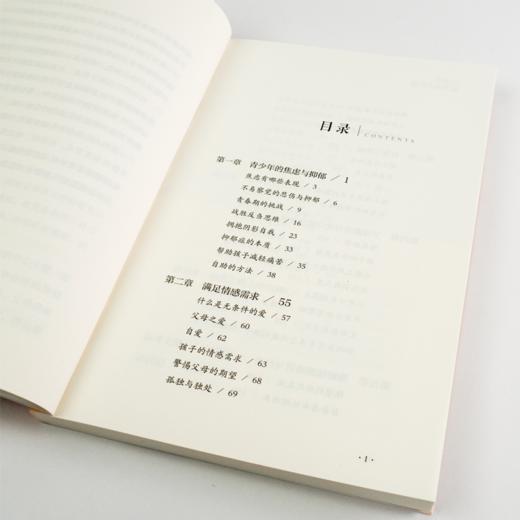 目录
CONTENTS
第一章 青少年的焦虑与抑郁 / 1
焦虑有哪些表现 / 3
不易察觉的悲伤与抑郁 / 6
青春期的挑战 / 9
战胜反刍思维 / 16
拥抱阴影自我 / 23
抑郁症的本质 / 33
帮助孩子减轻痛苦 / 35
自助的方法 / 38
第二章 满足情感需求 / 55
什么是无条件的爱 / 57
父母之爱 / 60
自爱 / 62
孩子的情感需求 / 63
警惕父母的期望 / 68
孤独与独处 / 69
· 1 ·